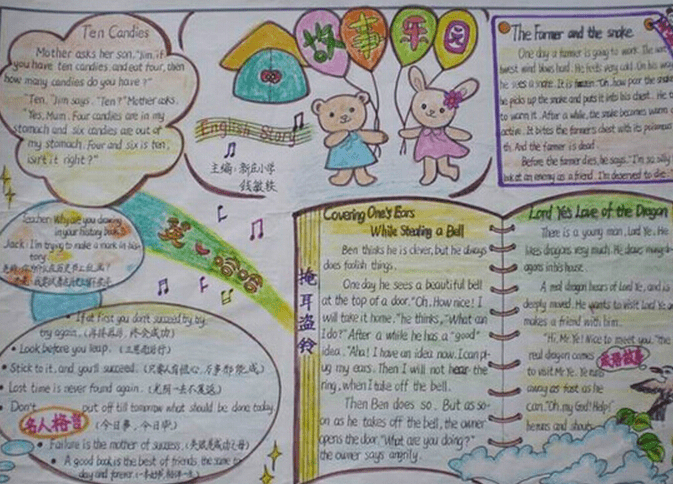 Ten Candies
Mother asks her son, "Jim, if
you have ten candies, and eat four, then
how many candies do you have?"
"Ten," Jim says. "Ten?" Mother asks.
"Yes, Mum. Four candies are in my
stomach and six candies are out of
my stomach. Four and six is ten,
isn't it right?"
故事乐园
English Story
主编:新庄小学
钱敏轶
The Farmer and the snake
One day a farmer is going to work. The
west wind blows hard. He feels very cold. On his way
he sees a snake. It is "Oh, poor the snake
he picks up the snake and puts it into his chest. He
to warm it. After a while, the snake becomes warm
active. It bites the farmer's chest with its poisonous
th. And the farmer is dead.
Before the farmer dies, he says, "I'm so silly
look at an enemy as a friend. I'm deserved to die
Teacher: Why are you drawing
in your history book
Jack: I'm trying to make a mark in his
tory.
英 哈哈
If at first you don't succeed, try, try
try again. (再接再厉,终会成功)
Look before you leap. (三思而后行)
Stick to it, and you'll succeed. (只要人有恒心,万事都能成)
Lost time is never found again. (光阴一去不复返)
Don't put off till tomorrow what should be done today.
名人格言 (今日事,今日毕)
Failure is the mother of success. (失败是成功之母)
A good book is the best of friends, the same to
day and forever.
掩耳盗铃
Covering One's Ears
While Stealing a Bell
Ben thinks he is clever, but he always
does foolish things.
One day he sees a beautiful bell
at the top of a door. "Oh, How nice! I
will take it home." he thinks, "What can
I do?" After a while he has a "good"
idea. "Aha! I have an idea now. I can pl-
ug my ears. Then I will not hear the
ring, when I take off the bell.
Then Ben does so. But as so-
on as he takes off the bell, the owner
opens the door. "What are you doing?"
the owner says angrily.
Lord Ye's Love of the Dragon
There is a young man, Lord Ye. He
likes dragons very much. He draws many dr-
agons in his house.
A real dragon hears of Lord Ye, and is
deeply moved. He wants to visit Lord Ye an
makes a friend with him.
"Hi, Mr Ye! Nice to meet you." the
real dragon comes
to visit Mr Ye. Ye runs
away as fast as he
can. "Oh, my God! Help!"
he runs and shouts.
成语故事